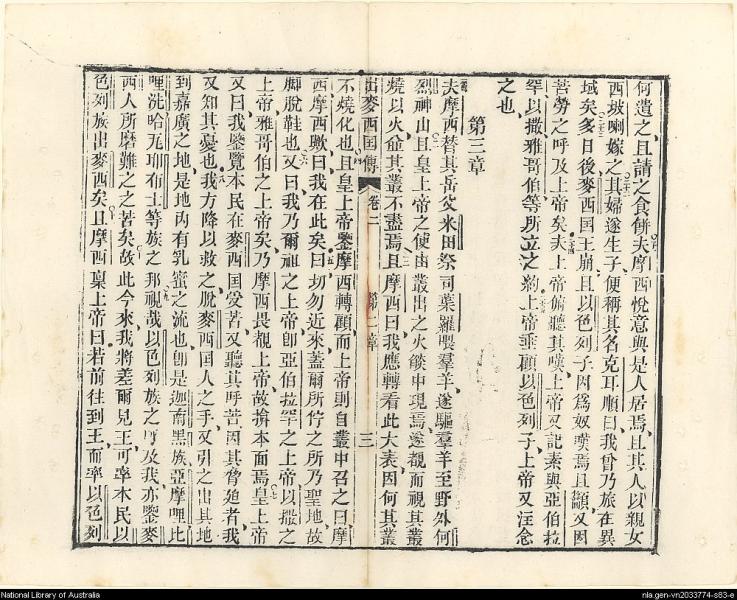 何遣之且請之食餅夫摩西悅意與是人居焉且其人以親女
西坡喇嫁之其婦遂生子便稱其名克耳順曰我曾乃旅在異
域矣多日後麥西国王崩且以色列子因為奴嘆焉且顓又因
苦勞之呼及上帝矣夫上帝俯聽其嘆上帝又記素與亞伯拉
罕以撒雅哥伯等所立之約上帝垂顧以色列子上帝又注念
之也
第三章
夫摩西替其岳父米田祭司葉羅㗨羣羊遂驅羣羊至野外何
烈神山且皇上帝之使由叢出之火燄中現焉遂觀而視其叢
燒以火僉其叢不盡焉且摩西曰我應轉看此大表因何其叢
出麥西国傳 卷二 第二章 三
不燒化也且皇上帝鑒摩西轉顧而上帝則自叢中召之曰摩
西摩西歟曰我在此矣曰切勿近來蓋爾所佇之所乃聖地故
脚脫鞋也又曰我乃爾祖之上帝卽亞伯拉罕之上帝以撒之
上帝雅哥伯之上帝矣乃摩西畏覩上帝故掩本面焉皇上帝
又曰我鑒覽本民在麥西国愛苦又聽其呼苦因其脅廹者我
又知其憂也我方降以救之脫麥西国人之手又引之出其地
到嘉廣之地是地內有乳蜜之流也卽是迦南黑族亞摩哩比
哩洗哈元耶布士等族之邦視哉以色列族之呼及我亦鑒麥
西人所磨難之之苦矣故此今來我將差爾見王可率本民以
色列族出麥西矣且摩西稟上帝曰若前往到王而率以色列
National Library of Australia
nla.gen-vn2033774-s83-e